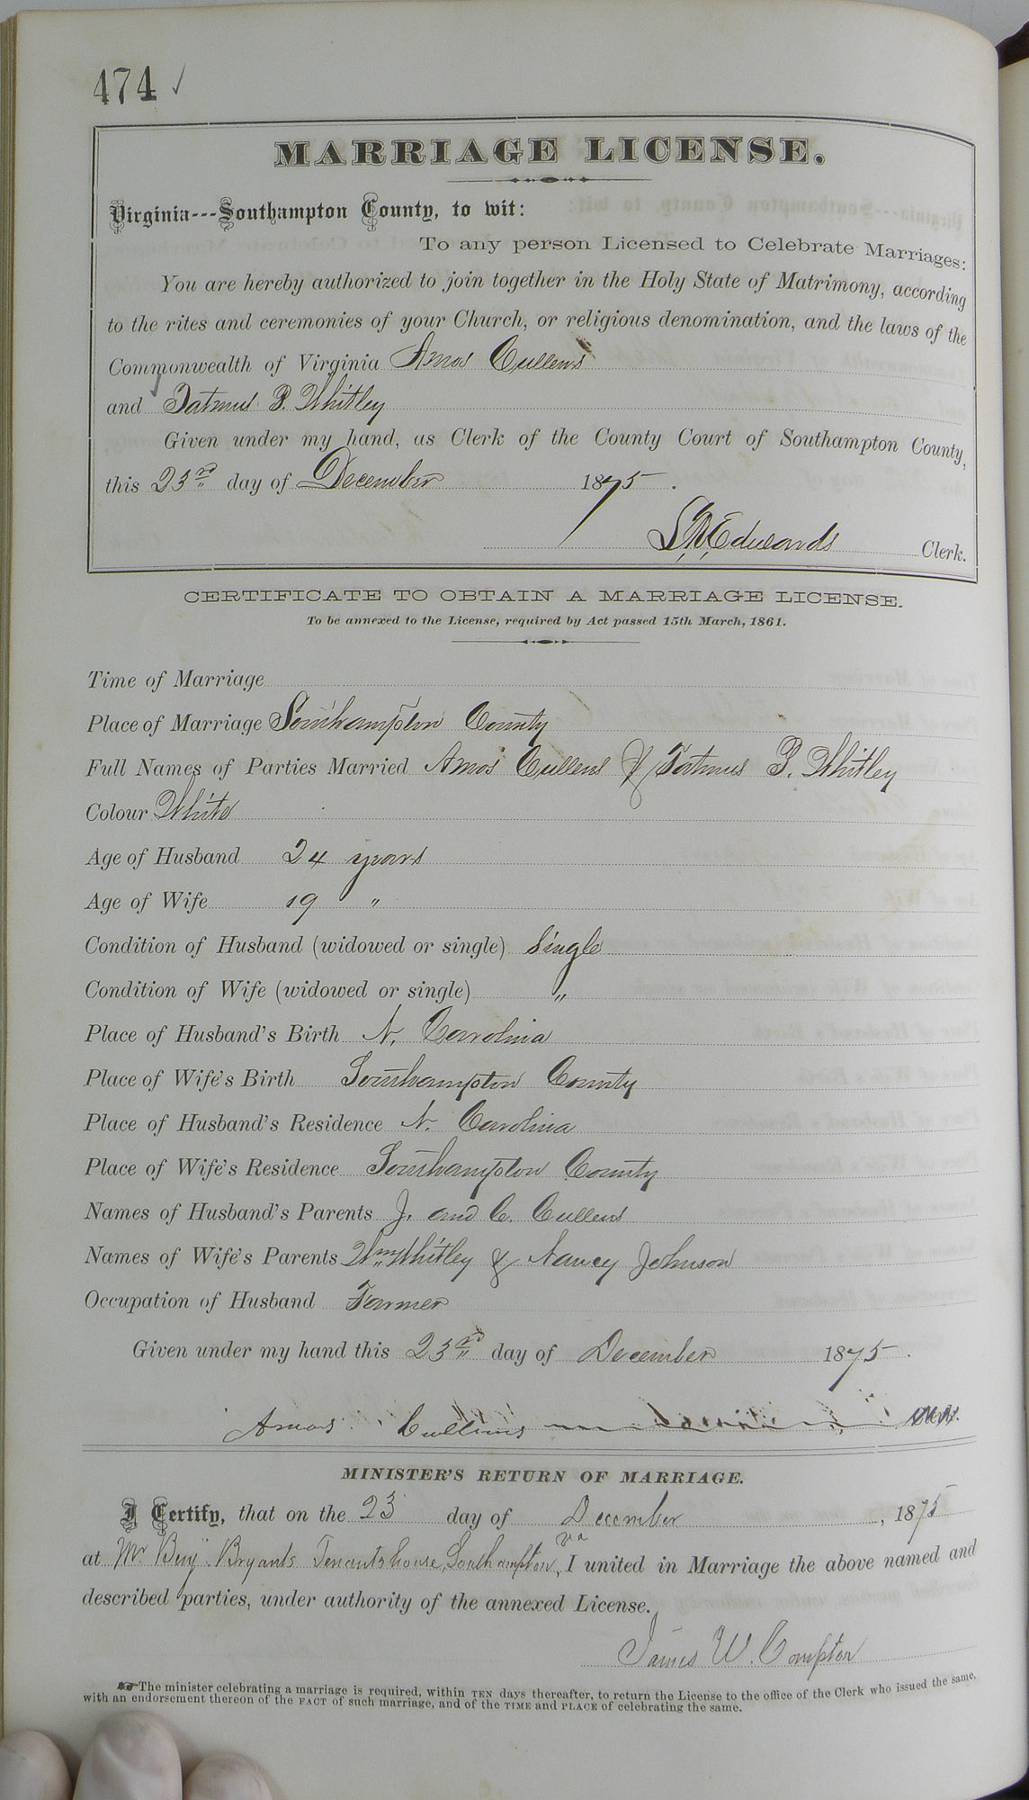 474 ✓
MARRIAGE LICENSE.
Virginia---Southampton County, to wit:
To any person Licensed to Celebrate Marriages:
You are hereby authorized to join together in the Holy State of Matrimony, according
to the rites and ceremonies of your Church, or religious denomination, and the laws of the
Commonwealth of Virginia Amos Cullens
and Tatmus P. Whitley
Given under my hand, as Clerk of the County Court of Southampton County,
this 23rd day of December 1875.
Edwards Clerk.
CERTIFICATE TO OBTAIN A MARRIAGE LICENSE.
To be annexed to the License, required by Act passed 15th March, 1861.
Time of Marriage
Place of Marriage Southampton County
Full Names of Parties Married Amos Cullens & Tatmus P. Whitley
Colour White
Age of Husband 24 years
Age of Wife 19 "
Condition of Husband (widowed or single) Single
Condition of Wife (widowed or single) "
Place of Husband's Birth N. Carolina
Place of Wife's Birth Southampton County
Place of Husband's Residence N. Carolina
Place of Wife's Residence Southampton County
Names of Husband's Parents J. and C. Cullens
Names of Wife's Parents Wm Whitley & Nancy Johnson
Occupation of Husband Farmer
Given under my hand this 23rd day of December 1875.
Amos Cullens
MINISTER'S RETURN OF MARRIAGE.
I Certify, that on the 23 day of December, 1875
at Mr Benj. Bryants Tenants house, Southampton, Va I united in Marriage the above named and
described parties, under authority of the annexed License.
James W. Compton
The minister celebrating a marriage is required, within TEN days thereafter, to return the License to the office of the Clerk who issued the same,
with an endorsement thereon of the FACT of such marriage, and of the TIME and PLACE of celebrating the same.